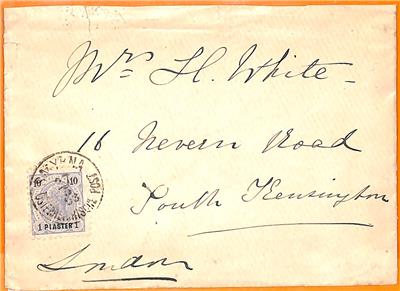 Mrs H. White
16 Nevern Road
South Kensington
London
SMYRNA
OESTERREICHISCHE POST
10 10
1 PIASTER 1